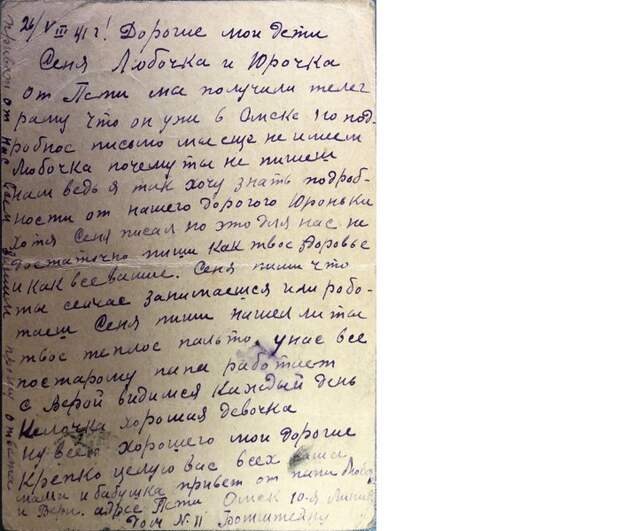 26/VIII 41 г! Дорогие мои дети
Сеня Любочка и Юрочка
от Пети мы получили телег
раму что он уже в Омске но под-
робнос письмо мы еще не имеем
Любочка почему ты не пишеш
нам ведь я так хочу знать подроб-
ности от нашего дорогого Юроньки
Хотя Сеня писал но это для нас не
достаточно пиши как твое здоровье
и как все ваши. Сеня пиши что
ты сейчас занимаешся или робо-
таеш Сеня пиши нашел ли ты
твое теплое пальто, у нас все
постарому папа работает
с Верой видимся каждый день
Нелочка хорошая девочка
ну всего хорошего мои дорогие
Крепко целую вас всех ваша
мама и бабушка привет от папы
и Веры. адрес Пети Омск 10-я Линия
Дом № 11
привет от нас всем вашим